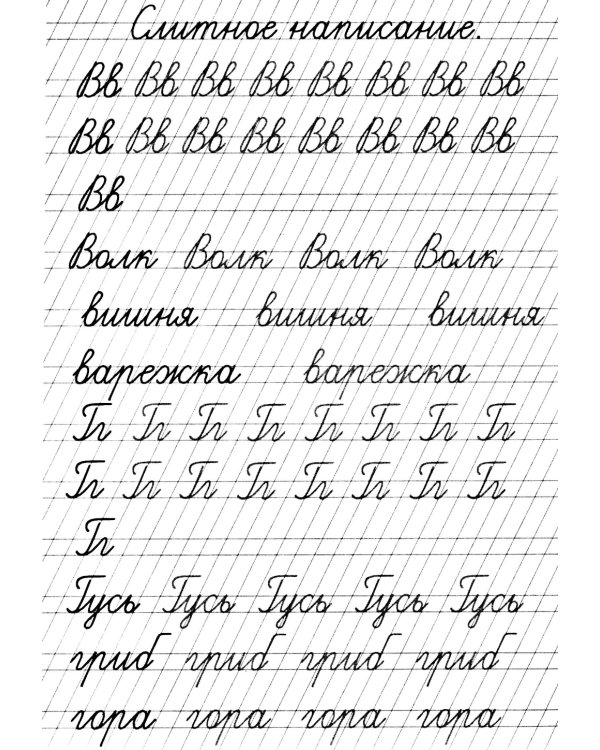 Слитное написание.
Вв Вв Вв Вв Вв Вв Вв Вв
Вв Вв Вв Вв Вв Вв Вв Вв
Вв
Волк Волк Волк Волк
вишня вишня вишня
варежка варежка
Гг Гг Гг Гг Гг Гг Гг Гг
Гг Гг Гг Гг Гг Гг Гг Гг
Гг
Гусь Гусь Гусь Гусь Гусь
гриб гриб гриб гриб
гора гора гора гора